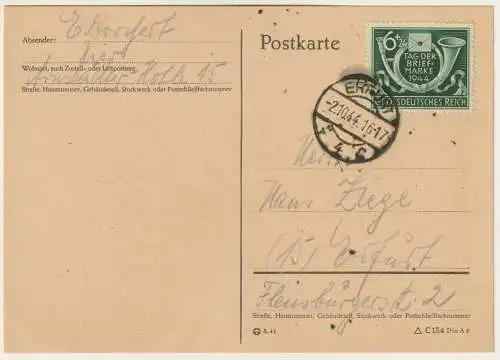 Absender: E. Borchert
hier
Wohnort, auch Zustell- oder Leitpostamt
15
Straße, Hausnummer, Gebäudeteil, Stockwerk oder Postschließfachnummer
Postkarte
6+24
TAG DER BRIEF-
MARKE 1944
GROSSDEUTSCHES REICH
ERFURT
-2.10.44.16-17
4
Herrn
Hans Ziege
(15) Erfurt
Flensburgerstr. 2
Straße, Hausnummer, Gebäudeteil, Stockwerk oder Postschließfachnummer
C 154 Din A 6